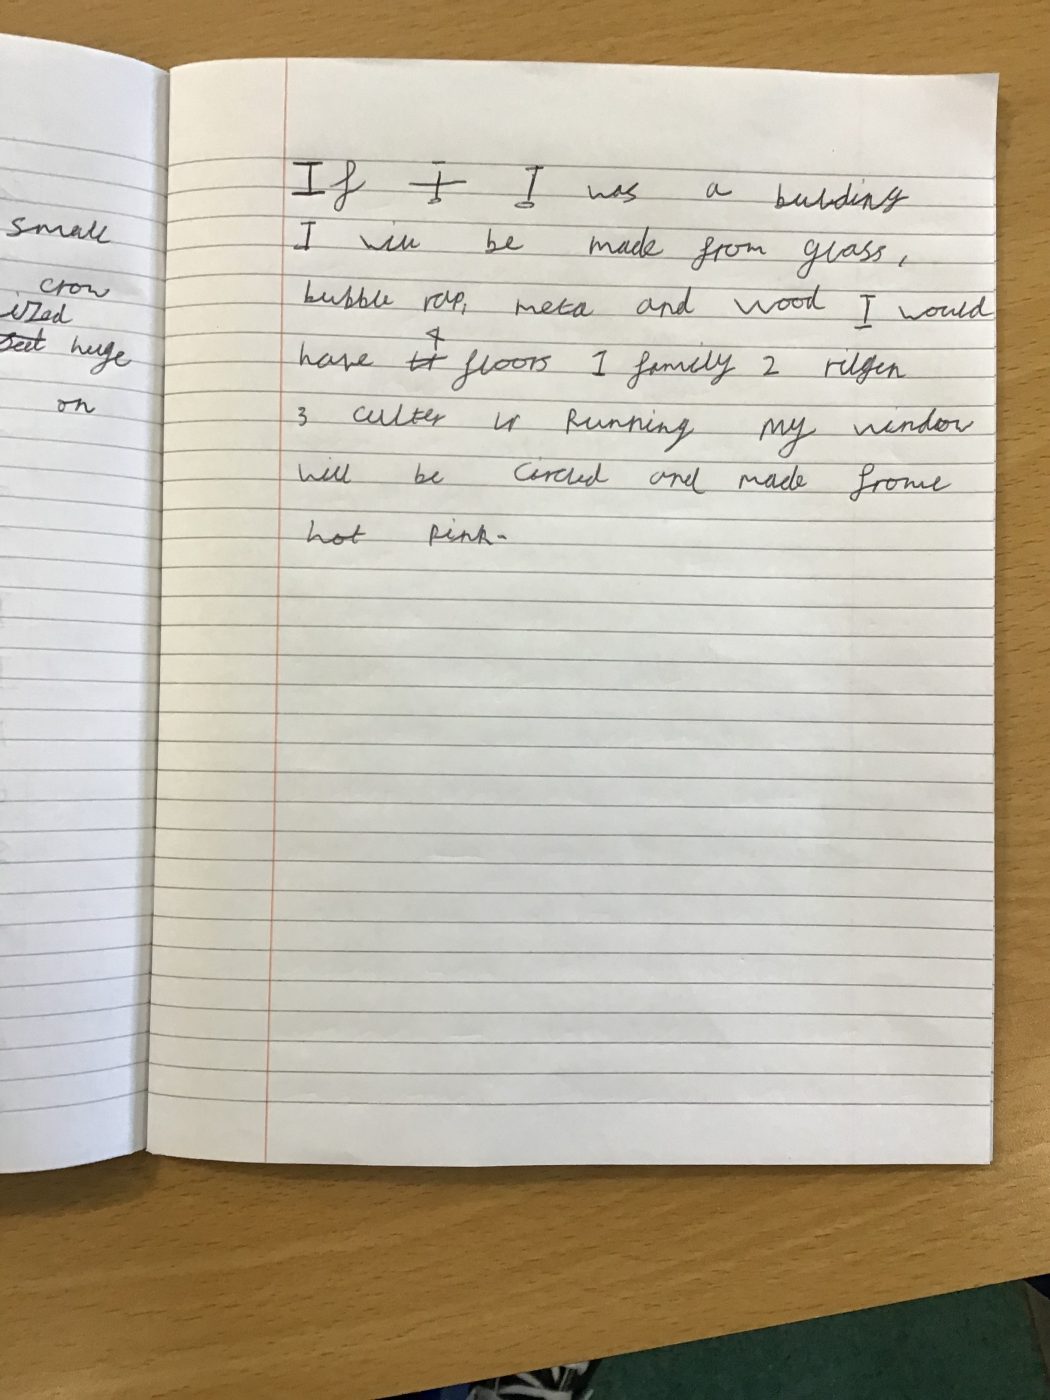 small
crow
ized
huge
on
If I I was a building
I will be made from glass,
bubble rap, meta and wood I would
have 4 floors 1 family 2 riligen
3 culter 4 Running my window
will be circled and made frome
hot pink.